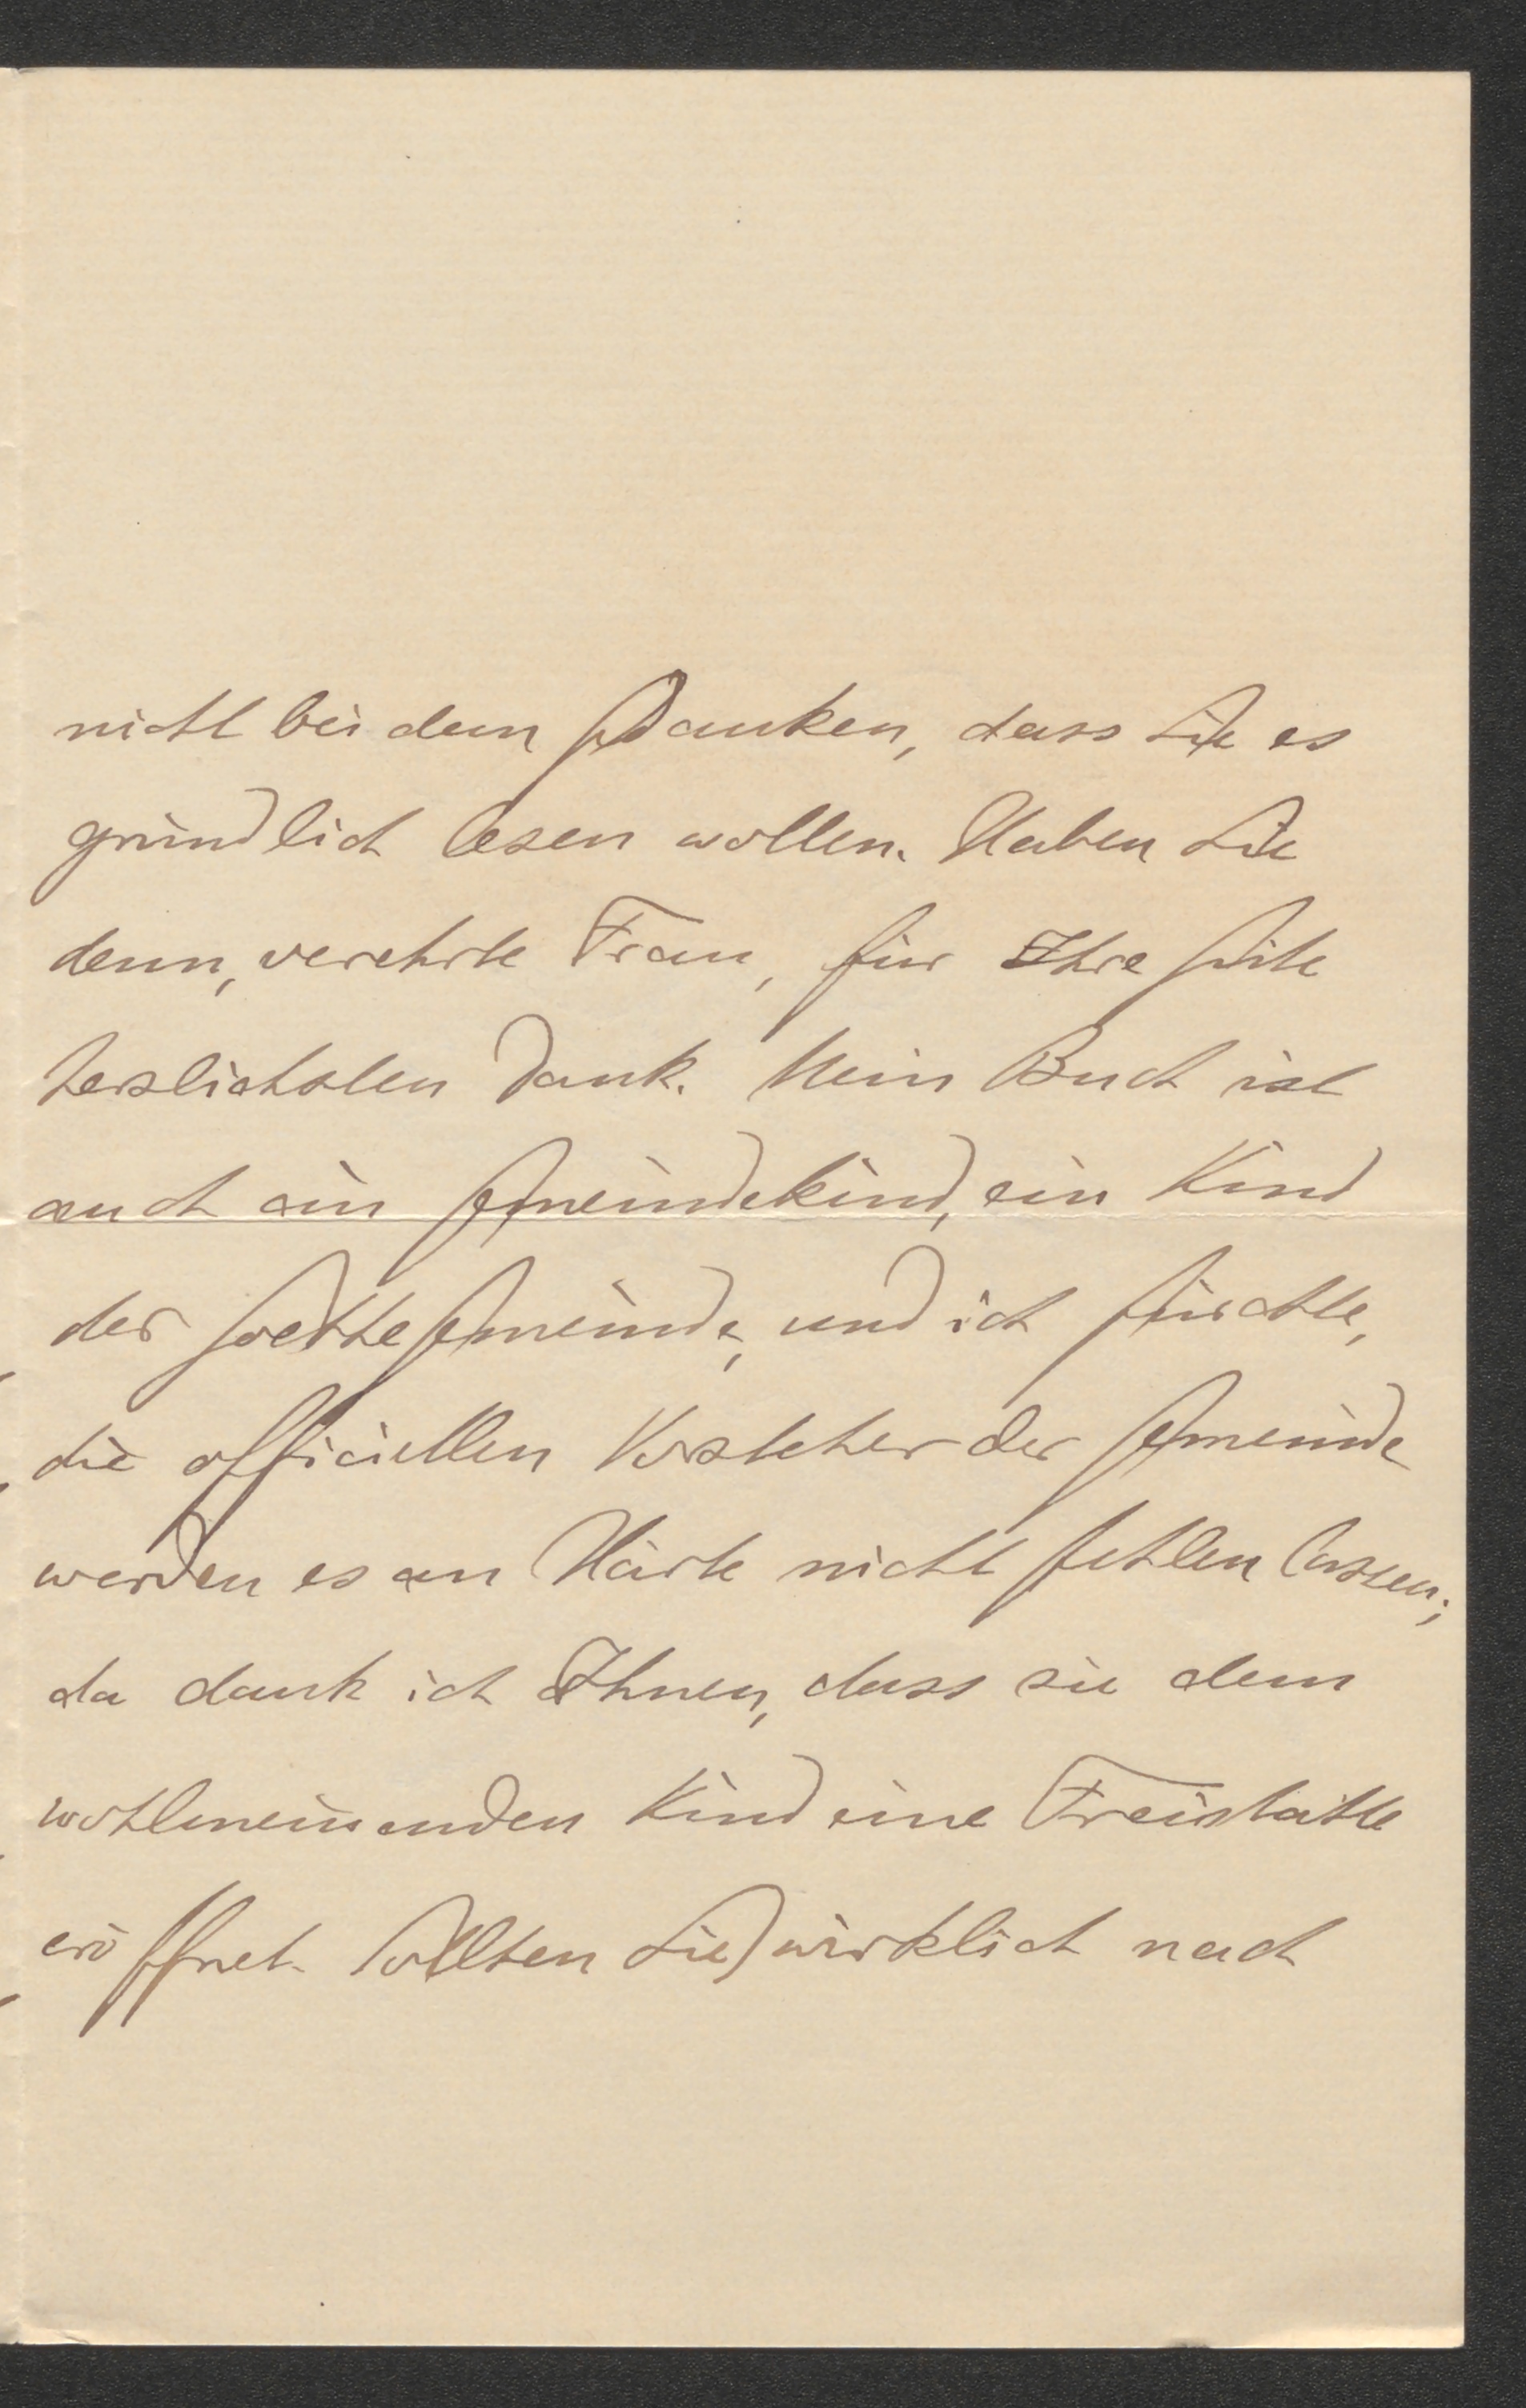 nicht bei dem Gedanken, dass Sie es
gründlich lesen wollen. Haben Sie
denn, verehrte Frau, für Ihre Güte
herzlichsten Dank. Mein Buch ist
auch ein Gemeindekind, ein Kind
der Goethe Gemeinde, und ich fürchte,
die officiellen Vorsteher der Gemeinde
werden es an Härte nicht fehlen lassen;
da dank ich Ihnen, dass sie dem
wohlmeinenden Kind eine Freistätte
eröffnet. Sollten Sie wirklich nach